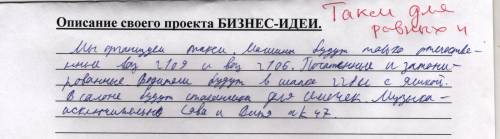 Описание своего проекта БИЗНЕС-ИДЕИ.
Такси для
равных ч
Мы организуем такси. Машины будут только отечестве-
нные ваз 2109 и ваз 2106. Посаженные и затони-
рованные. Водители будут в шапке с яшкой.
В салоне будут стаканчики для семечек. Музыка-
исключительно Сява и Витя ак 47.